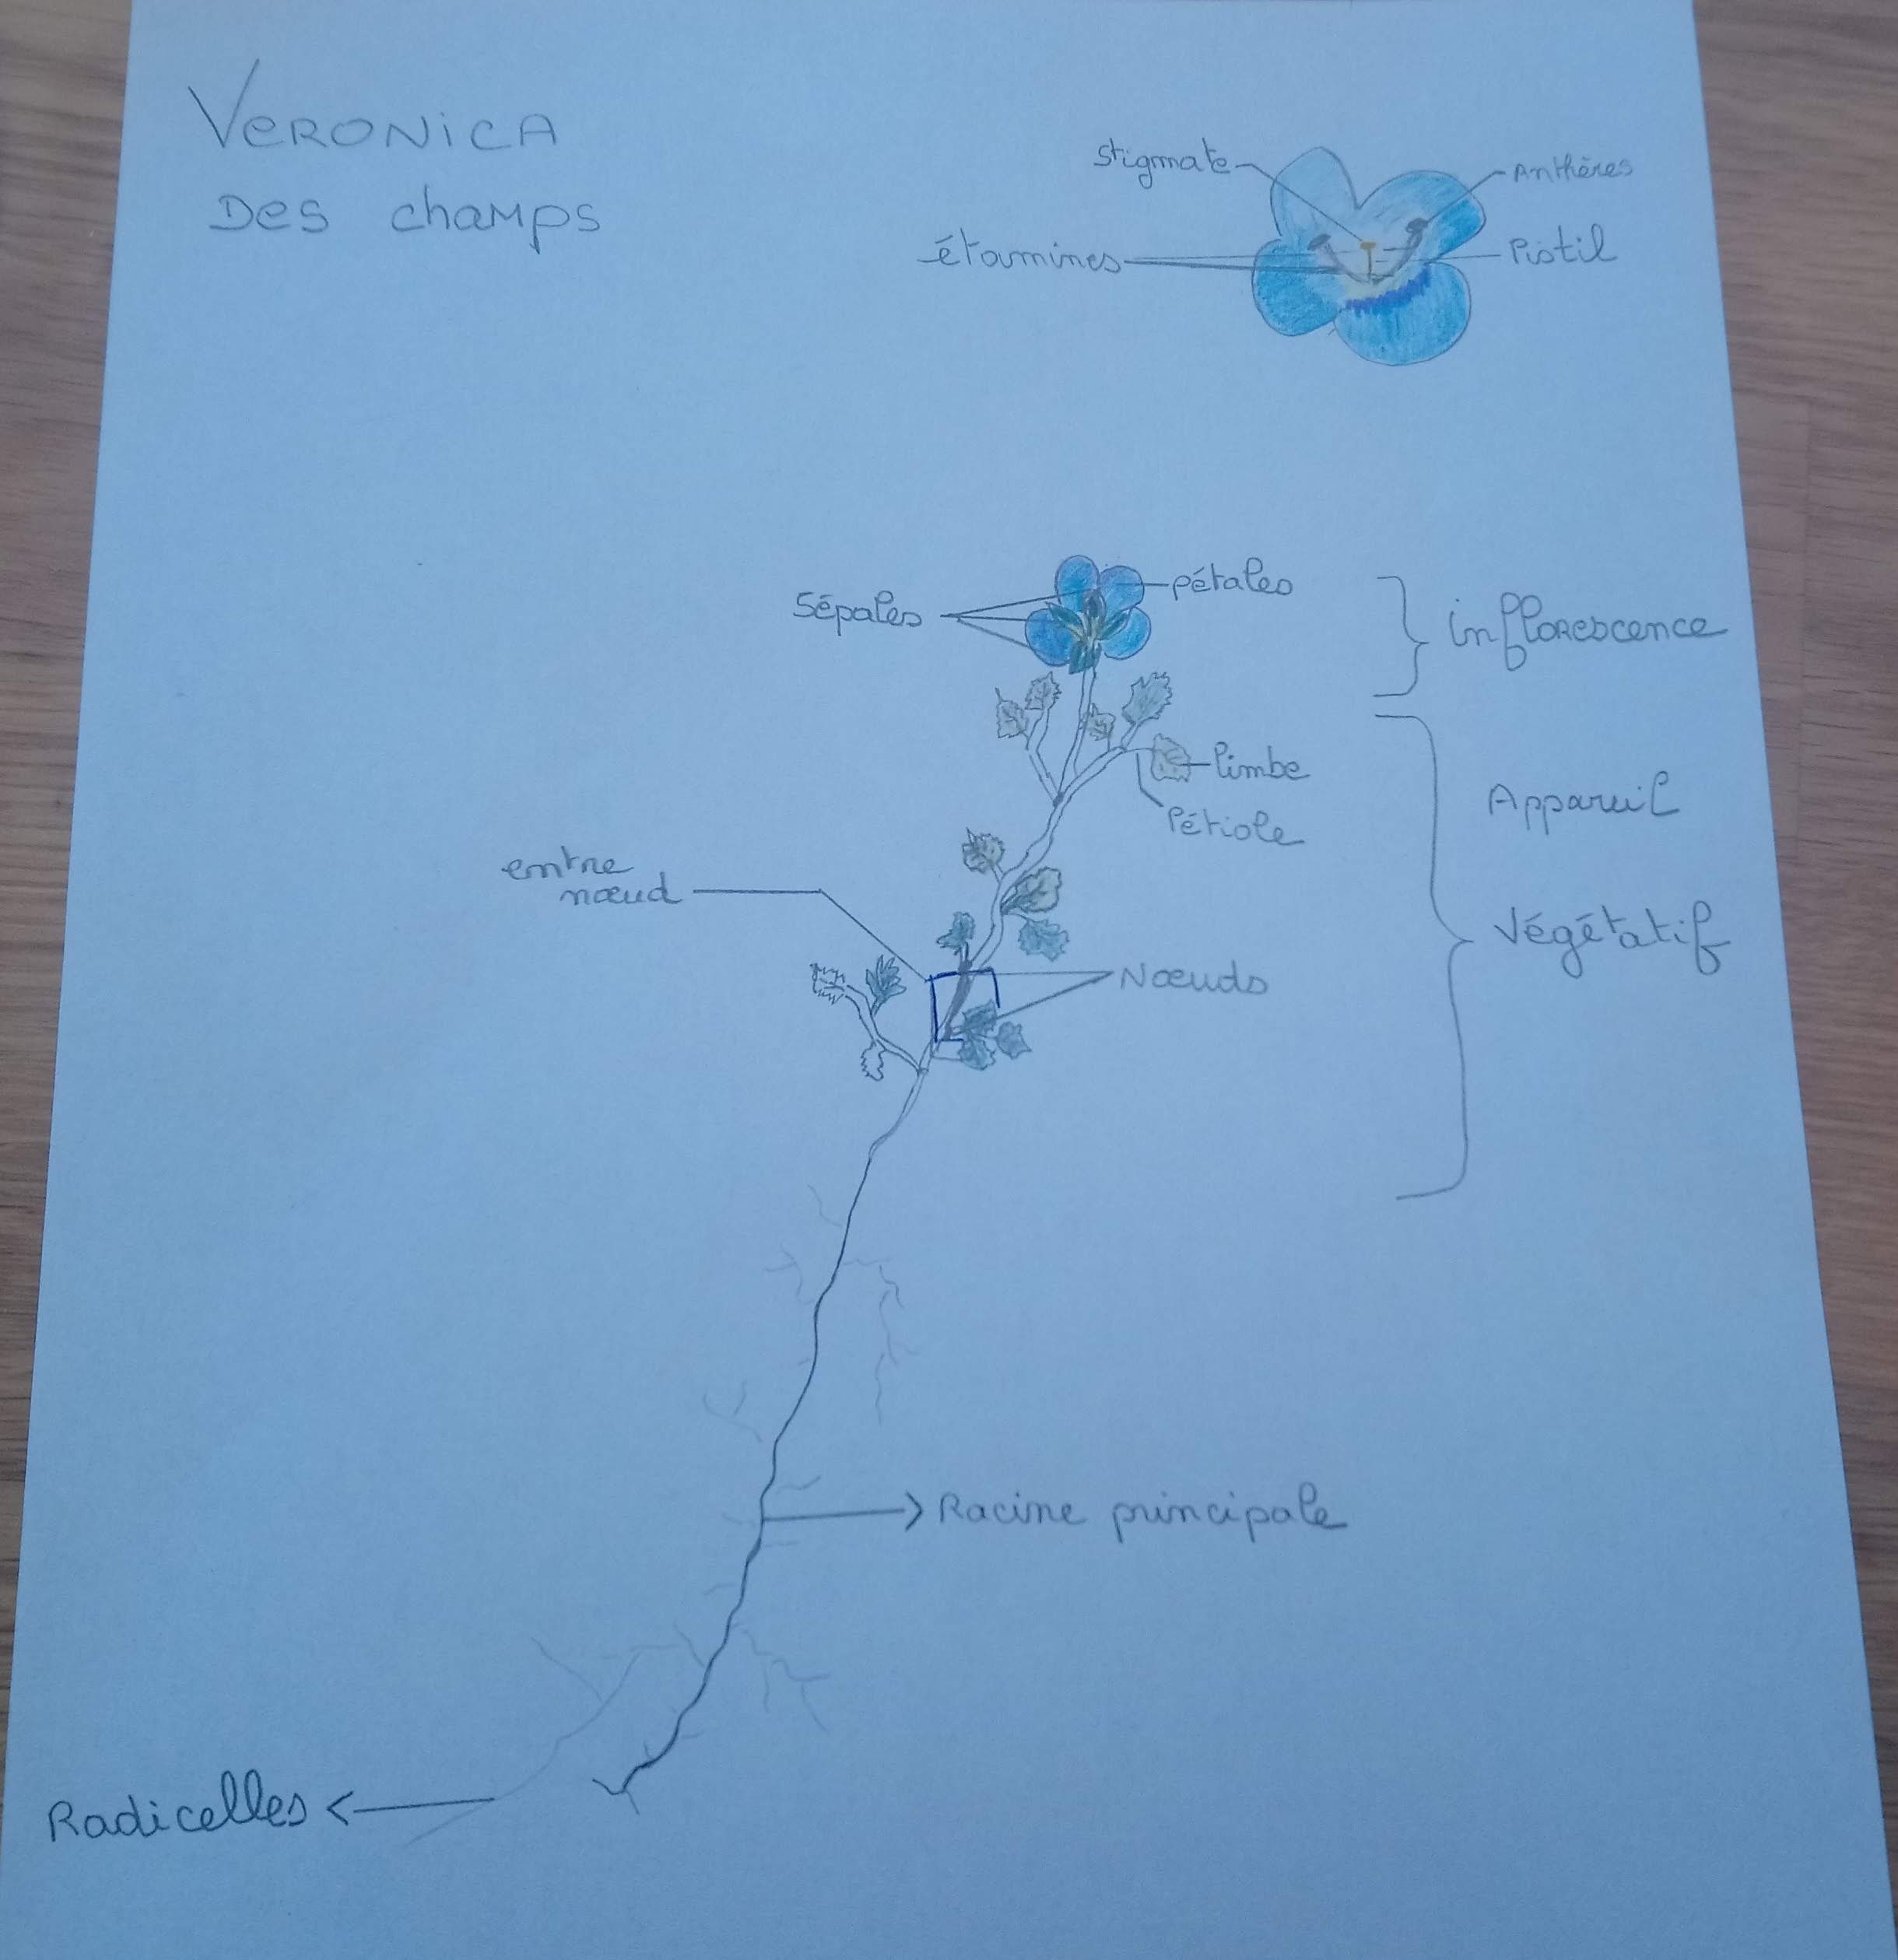 VERONICA
Des champs
Stigmate
Anthères
étamines
Pistil
Sépales
pétales
inflorescence
limbe
Pétiole
Appareil
végétatif
entre
nœud
Nœuds
Racine principale
Radicelles